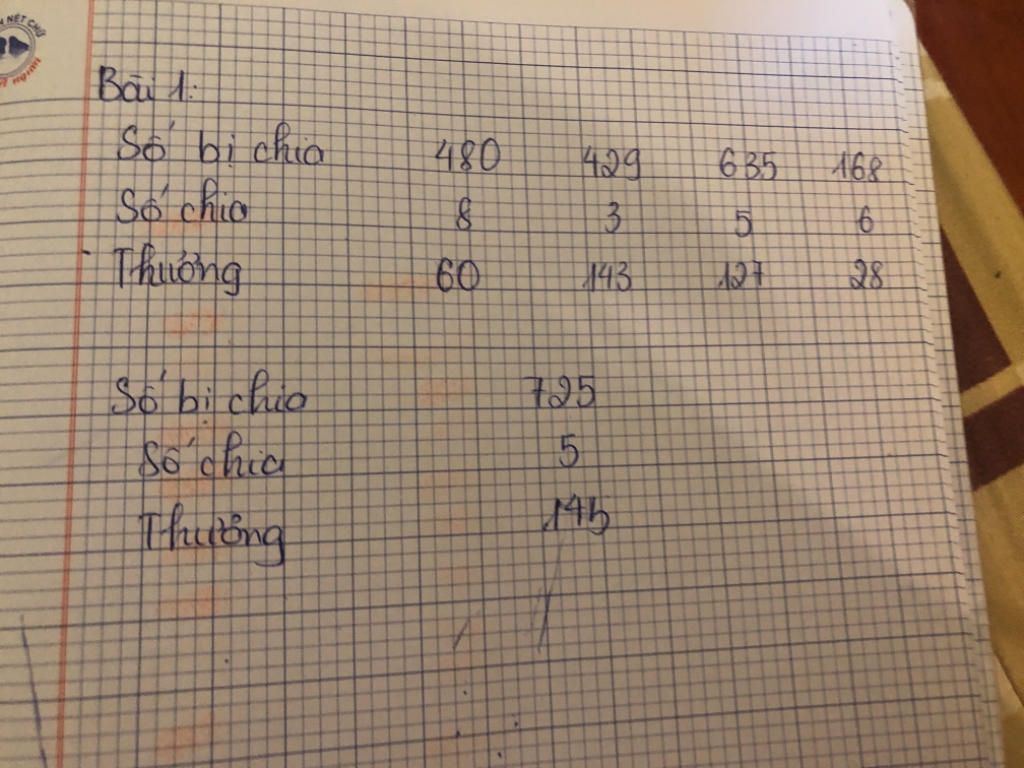 NÉT CHỮ
Bài 1:
Số bị chia 480 429 635 168
Số chia 8 3 5 6
Thương 60 143 127 28
Số bị chia 725
Số chia 5
Thương 145